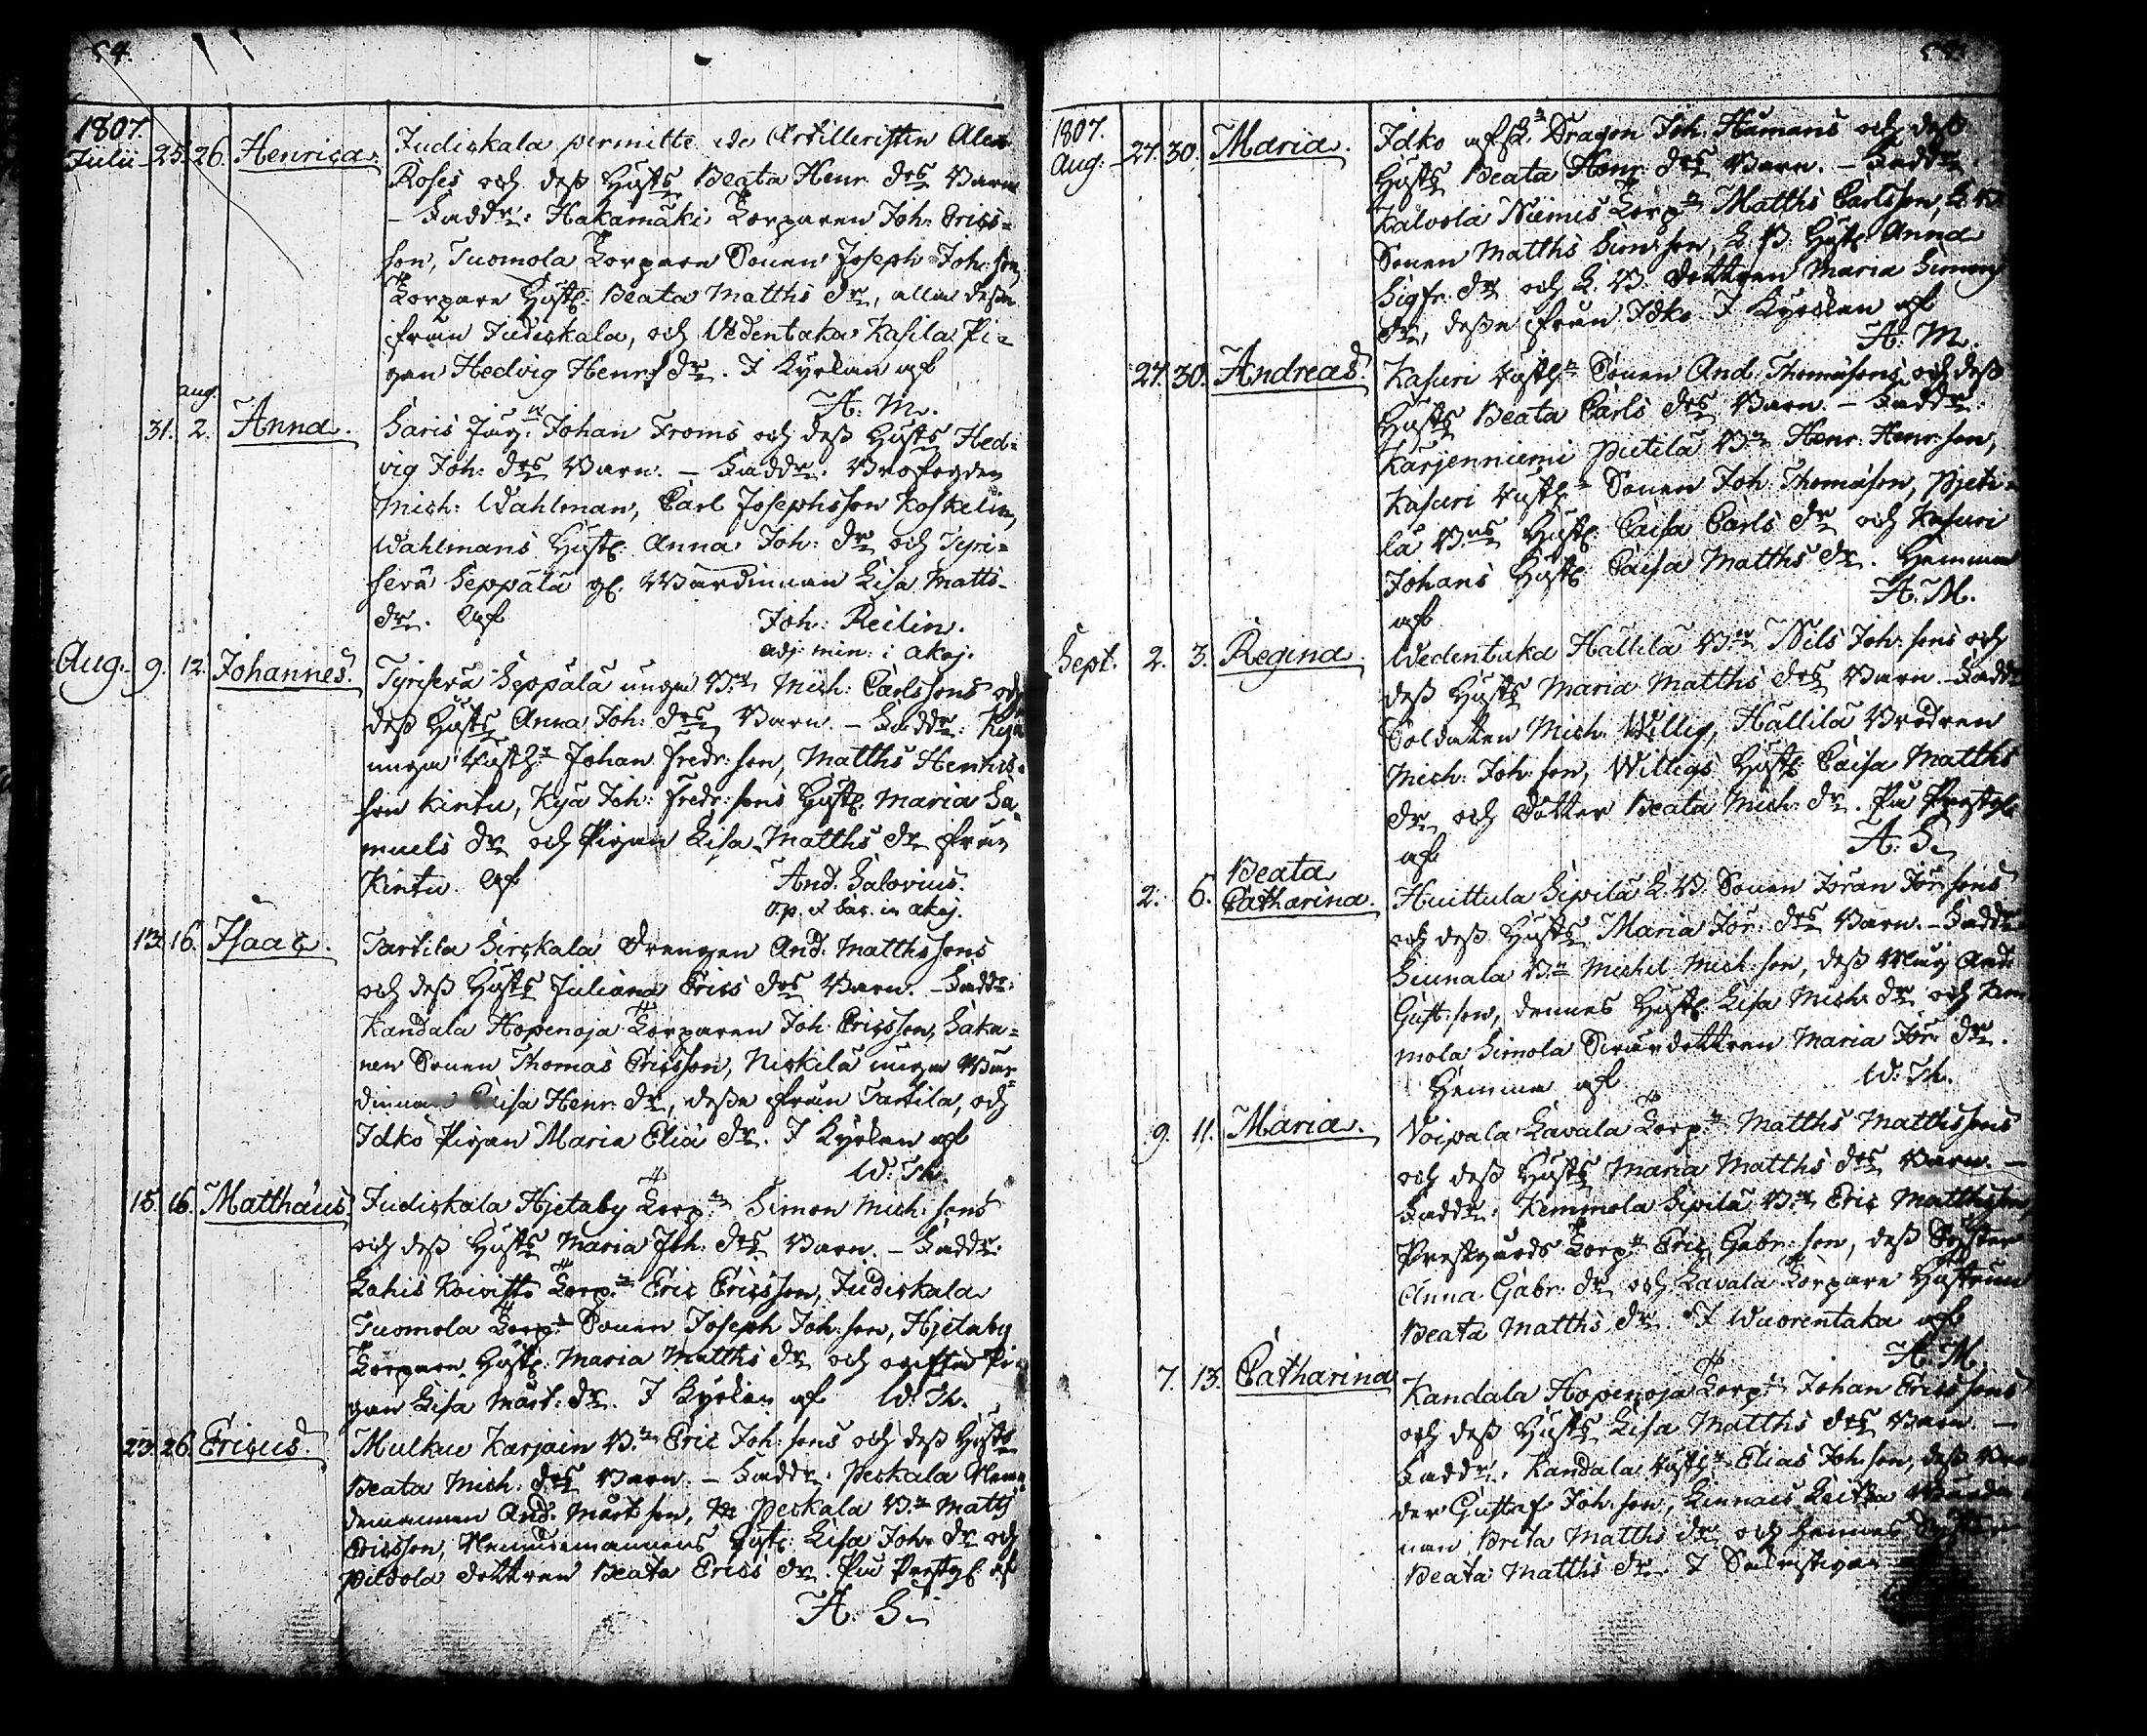 54.
1807.
Julii 25. 26. Henrica. Judickala permitterade Artilleristen Alex
Roses och dess Hust. Beata Henr. drs Barn
– Faddr: Hakamäki Torparen Joh: Erics=
son, Tuomola Torpare Sonen Joseph Joh: son,
Torpare Hust: Beata Matths dr, alla desse
från Judickala, och Wedentaka Kasila Pi=
gan Hedvig Henr: dr. I Kyrkan af
A: M.
aug.
31. 2. Anna. Saris Johan Froms och dess Hust. Hed=
vig Joh: drs Barn. – Faddr: Brofogden
Mich: Wahlman, Carl Josephsson Koskelin,
Wahlmans Hust: Anna Joh: dr och Tyri=
serä Seppälä gl. Wärdinnan Lisa Matts-
dr. af Joh: Reilin.
adj: min: i Akaj.
Aug. 9. 12. Johannes. Tyriserä Seppälä unga B:n Mich: Carlssons och
dess Hust. Anna Joh: drs Barn. – Faddr: Kyä
unga Johan Fredr: son, Matths Henrics=
son Kintu, Kyä Joh: Fredr: sons Hust: Maria Sa=
muels dr och Pigan Lisa Matths dr från
Kintu. af And. Salovius.
op. & Sac. in Akaj.
13. 16. Isaac. Tarttila Sirckala drengen And. Matthssons
och dess Hust. Juliana Erics drs Barn. – Faddr:
Kandala Hopenoja Torparen Joh: Ericsson, Saka=
nen Sonen Thomas Ericsson, Nickilä unga Wär=
dinnan Caisa Henr: dr, desse från Tarttila, och
Idko Pigan Maria Eliæ dr. I Kyrkan af
W: Th.
15. 16. Matthæus Judickala Hjetaby Torp:n Simon Mich: sons
och dess Hust. Maria Joh: drs Barn. – Faddr:
Lahis Koivisto Torp:n Eric Ericsson, Judickala
Tuomola Torp:n Sonen Joseph Joh: son, Hjetaby
Torpare Hust: Maria Matths dr och ogifta Pi=
gan Lisa Mårt: dr. I Kyrkan af W: Th.
23. 26. Ericus. Mulkue Karjain B:n Eric Joh: sons och dess Hust.
Beata Mich: drs Barn. – Faddr: Peskala Nemn=
demannen And: Mårt: son, Peskala B:n Matts
Ericsson, Nemndemannens Hust: Lisa Joh: dr och
dottren Beata Erics dr. På Prestg: af
A: S.
55.
1807.
Aug. 27. 30. Maria. Idko Dragon Joh: Humaris och dess
Hust. Beata Henr: drs Barn. – Faddr:
Kalvola Niemis Torp:n Matths Carlsson, L: B.
Sonen Matths Sim: son, L: B. Hust: Anna
Sigfr: dr och L. B. dottren Maria Simons
dr, desse från Idko. I Kyrkan af
A: M.
27. 30. Andreas. Kasuri Sonen And. Thomæsons och dess
Hust. Beata Carls drs Barn. – Faddr:
Karjenniemi Pietilä B:n Henr: Henr: son,
Kasuri Sonen Joh: Thomæson, Pjeti=
lä B:ns Hust: Caisa Carls dr och Kasuri
Johans Hust: Caisa Matths dr. Hemma
af A: M.
Sept. 2. 3. Regina. Wedentaka Hällilä B:n Nils Joh: sons och
dess Hust. Maria Matths drs Barn. – Faddr
Soldaten Mich: Willig, Hällilä Brodren
Mich: Joh: son, Willigs Hust: Caisa Matths
dr och dotter Beata Mich: dr. På Prestg:
af A: S.
2. 6. Beata
Catharina. Huittula Sipilä L: B. Sonen Jöran Jör: sons
och dess Hust. Maria Jör: drs Barn. – Faddr
B:n Michel Mich: son, dess Måg And:
Gust: son, dennes Hust: Lisa Mich: dr och Kem
mola Simola dottren Maria Jör: dr.
Hemma af W: Th.
9. 11. Maria. Voipala Lavala Torp:n Matths Matthssons
och dess Hust. Maria Matths drs Barn. –
Faddr: Kemmola Sipilä B:n Eric Matthsson,
Prestgårds Torp:n Eric Gabr: son, dess Syster
Anna Gabr: dr och Lavala Torpare Hustrun
Beata Matths dr. I Wuorentaka af
A: M.
7. 13. Catharina Kandala Hopenoja Torp:n Johan Ericssons
och dess Hust. Lisa Matths drs Barn. –
Faddr: Kandala Elias Joh: son, dess Bro
der Gustaf Joh: son,
nan Brita Matths dr och hennes Syster
Beata Matths dr. I Sacristigan